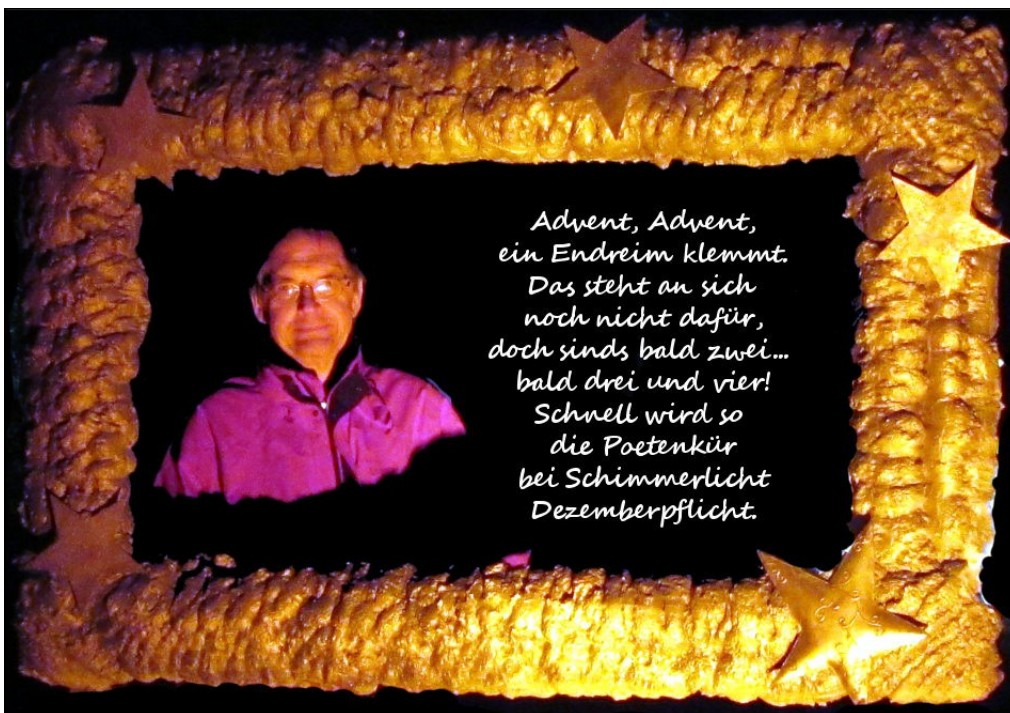 Advent, Advent,
ein Endreim klemmt.
Das steht an sich
noch nicht dafür,
doch sinds bald zwei...
bald drei und vier!
Schnell wird so
die Poetenkür
bei Schimmerlicht
Dezemberpflicht.